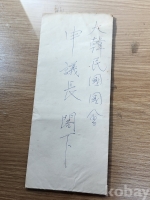 大韓民國國會
申議長 閣下
kobay